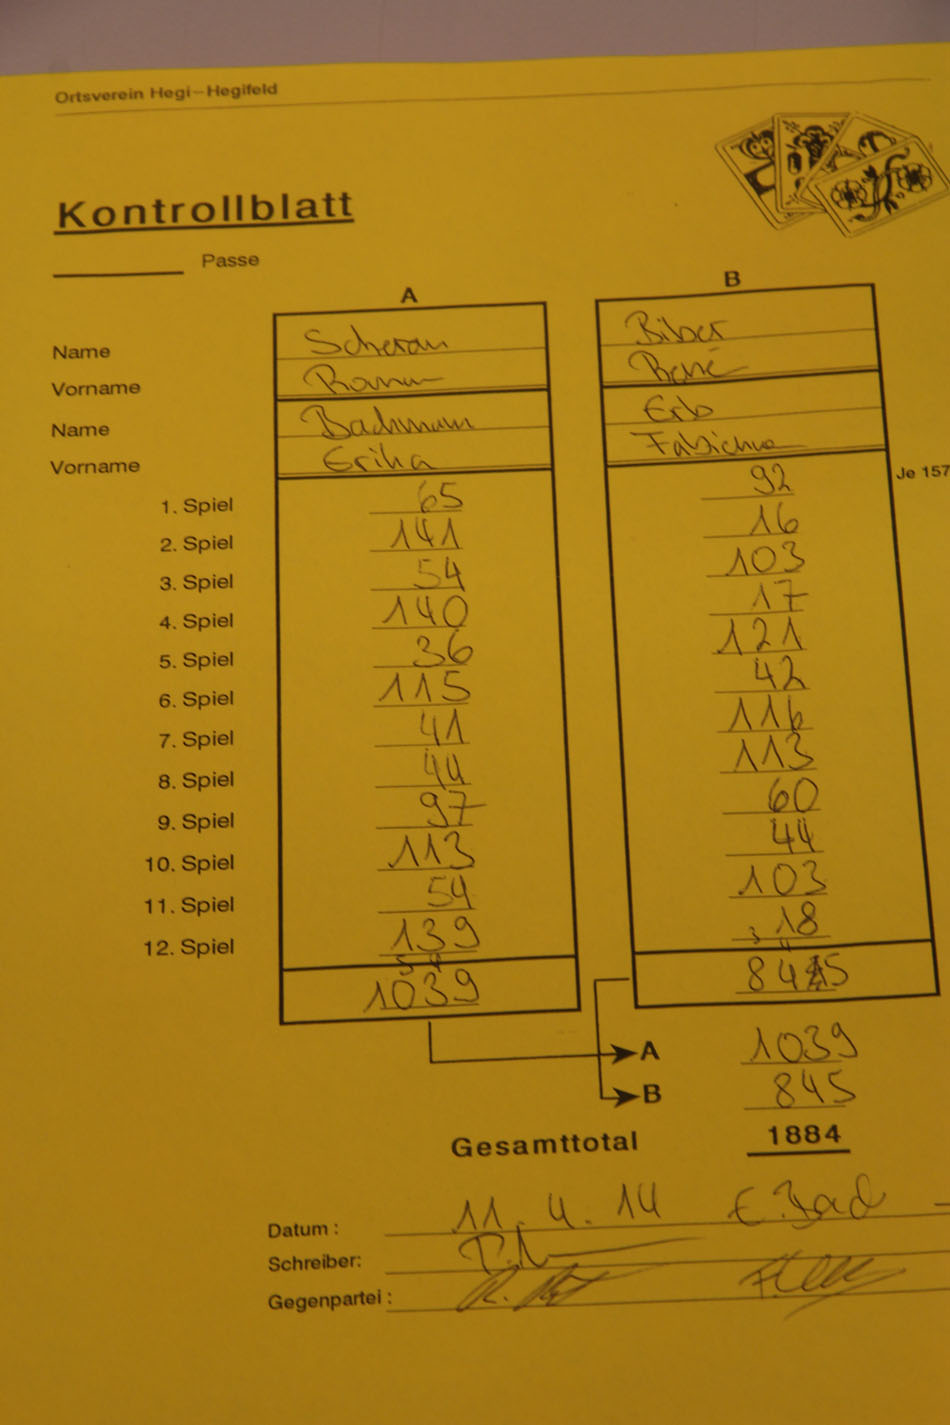 Ortsverein Hegi–Hegifeld
Kontrollblatt
Passe
A B
Name Scheran Biber
Vorname Roman René
Name Bachmann Erb
Vorname Erika Fabienne
Je 157
1. Spiel 65 92
2. Spiel 141 16
3. Spiel 54 103
4. Spiel 140 17
5. Spiel 36 121
6. Spiel 115 42
7. Spiel 41 116
8. Spiel 44 113
9. Spiel 97 60
10. Spiel 113 44
11. Spiel 54 103
12. Spiel 139 18
5 4 3 4
1039 845
A 1039
B 845
Gesamttotal 1884
Datum : 11. 4. 14
Schreiber:
Gegenpartei :